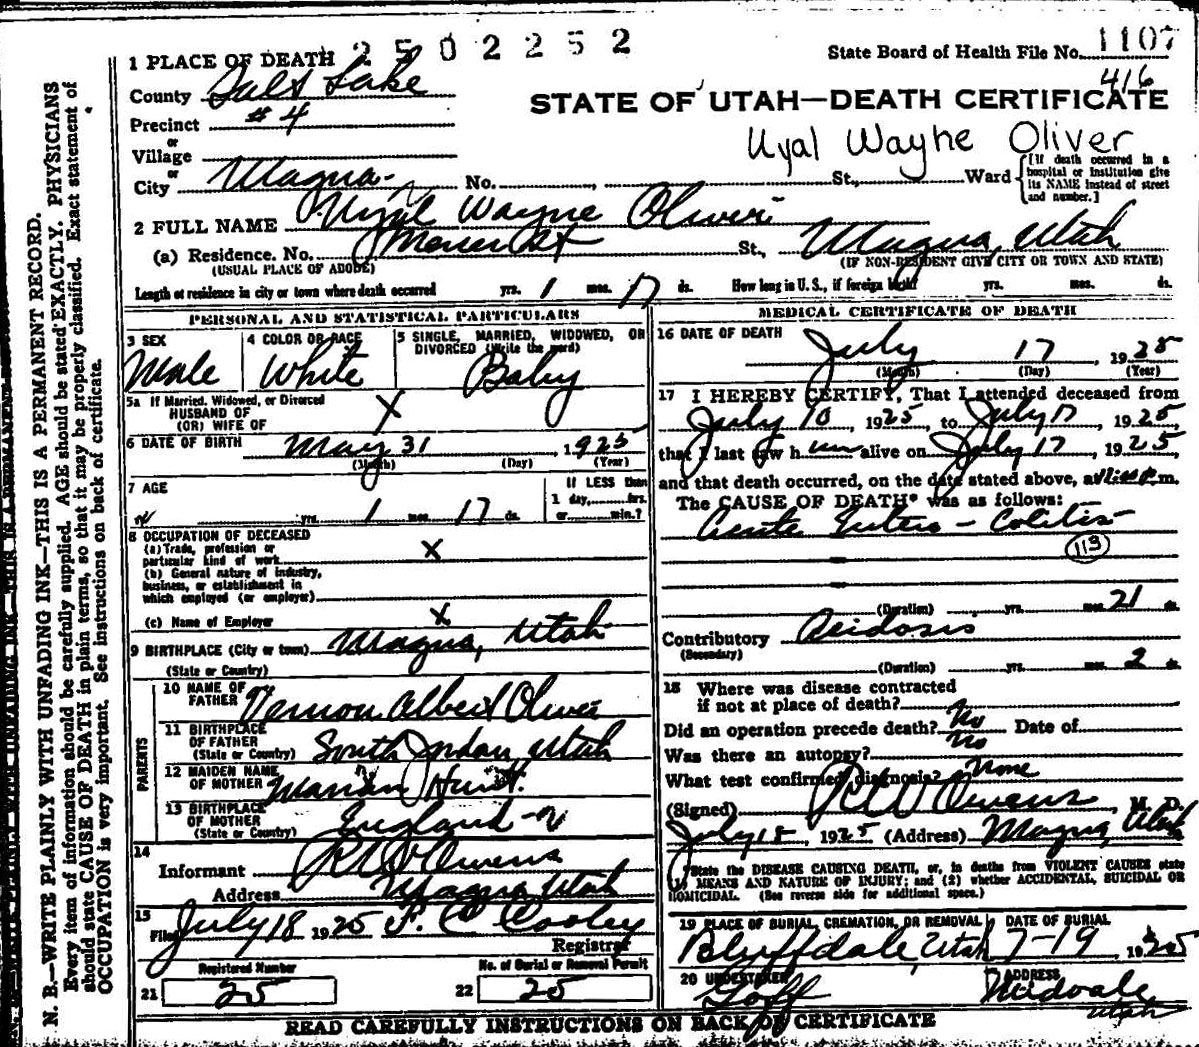 2502252
State Board of Health File No. 1107
416
1 PLACE OF DEATH
County Salt Lake
STATE OF UTAH—DEATH CERTIFICATE
Precinct #4
Uyal Wayne Oliver
or
Village
or
City Magna No. St., Ward [If death occurred in a hospital or institution give its NAME instead of street and number.]
2 FULL NAME Uyal Wayne Oliver
(a) Residence. No. St., Magna, Utah
(USUAL PLACE OF ABODE) (IF NON-RESIDENT GIVE CITY OR TOWN AND STATE)
Length of residence in city or town where death occurred yrs. 1 mos. 17 ds. How long in U. S., if foreign birth? yrs. mos. ds.
PERSONAL AND STATISTICAL PARTICULARS
3 SEX Male
4 COLOR OR RACE White
5 SINGLE, MARRIED, WIDOWED, OR DIVORCED (Write the word) Baby
5a If Married, Widowed, or Divorced
HUSBAND OF
(OR) WIFE OF X
6 DATE OF BIRTH May 31 1925
(Month) (Day) (Year)
7 AGE yrs. 1 mos. 17 ds.
IF LESS than 1 day, hrs. or min.?
8 OCCUPATION OF DECEASED
(a) Trade, profession or particular kind of work X
(b) General nature of industry, business, or establishment in which employed (or employer)
(c) Name of Employer X
9 BIRTHPLACE (City or town) Magna, Utah
(State or Country)
PARENTS
10 NAME OF FATHER Vernon Albert Oliver
11 BIRTHPLACE OF FATHER (State or Country) South Jordan, Utah
12 MAIDEN NAME OF MOTHER Marian Hurst.
13 BIRTHPLACE OF MOTHER (State or Country) England
14
Informant R W Owens
Address Magna Utah
15
Filed July 18 1925 F. C. Cooley
Registrar
Registered Number
21 25
No. of Burial or Removal Permit
22 25
MEDICAL CERTIFICATE OF DEATH
16 DATE OF DEATH July 17, 1925
(Month) (Day) (Year)
17 I HEREBY CERTIFY, That I attended deceased from
July 10, 1925, to July 17, 1925,
that I last saw him alive on July 17, 1925,
and that death occurred, on the date stated above, at m.
The CAUSE OF DEATH* was as follows:
Acute Entero-Colitis
113
(Duration) yrs. mos. 21 ds.
Contributory Acidosis
(Secondary)
(Duration) yrs. mos. 2 ds.
18 Where was disease contracted
if not at place of death?
Did an operation precede death? No Date of
Was there an autopsy? No
What test confirmed diagnosis? None
(Signed) R W Owens, M. D.
July 18, 1925 (Address) Magna, Utah
*State the DISEASE CAUSING DEATH, or, in deaths from VIOLENT CAUSES state (1) MEANS AND NATURE OF INJURY; and (2) whether ACCIDENTAL, SUICIDAL OR HOMICIDAL. (See reverse side for additional space.)
19 PLACE OF BURIAL, CREMATION, OR REMOVAL DATE OF BURIAL
Bluffdale, Utah 7-19 1925
20 UNDERTAKER ADDRESS
Goff Midvale Utah
READ CAREFULLY INSTRUCTIONS ON BACK OF CERTIFICATE
N. B.—WRITE PLAINLY WITH UNFADING INK—THIS IS A PERMANENT RECORD.
Every item of information should be carefully supplied. AGE should be stated EXACTLY. PHYSICIANS
should state CAUSE OF DEATH in plain terms, so that it may be properly classified. Exact statement of
OCCUPATION is very important. See instructions on back of certificate.